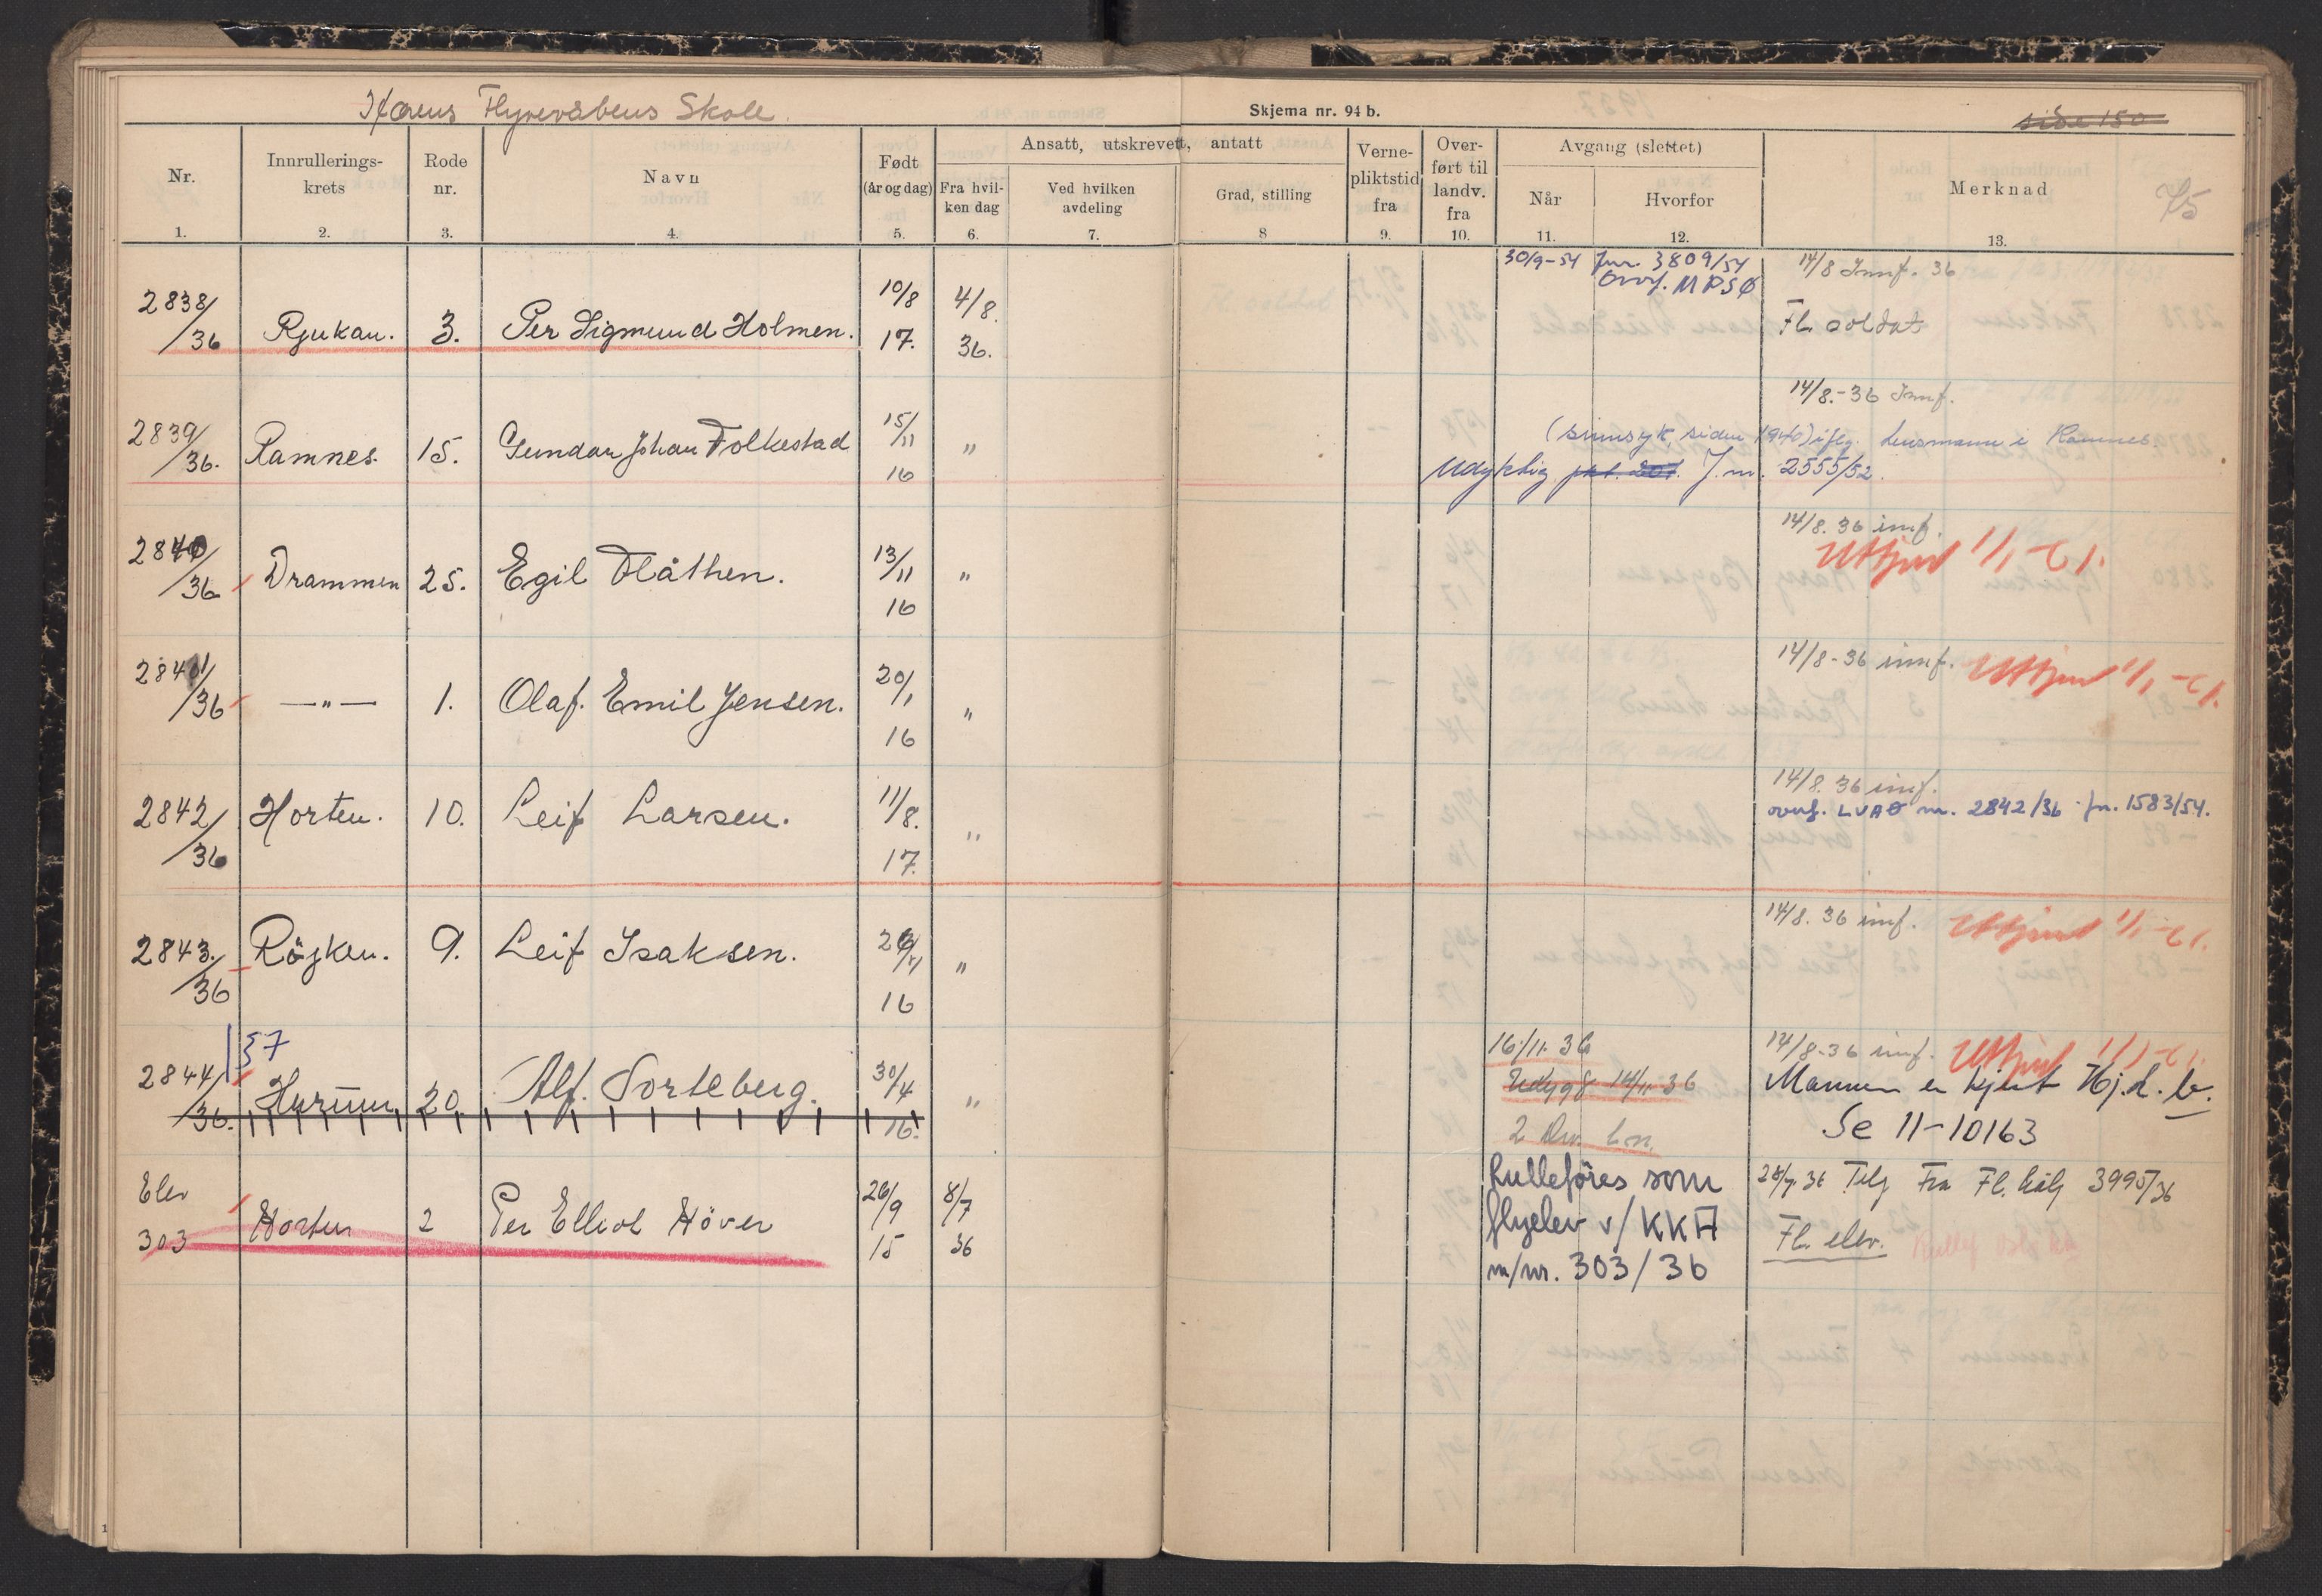 Hærens Flyvevåbens Skole.
Skjema nr. 94 b.
side 150
75
Nr.
Innrullerings-
krets
Rode
nr.
Navn
Født
(år og dag)
Ansatt, utskrevet, antatt
Fra hvil-
ken dag
Ved hvilken
avdeling
Grad, stilling
Verne-
pliktstid
fra
Over-
ført til
landv.
fra
Avgang (slettet)
Når
Hvorfor
Merknad
1. 2. 3. 4. 5. 6. 7. 8 9. 10. 11. 12. 13.
2838/36 Rjukan. 3. Per Sigmund Holmen. 10/8 17. 4/8. 36.
30/9-54 Jnr. 3809/54
Overf. MPSØ
14/8 Innf. 36
Fl. soldat
2839/36. Ramnes. 15. Gundar Johan Folkestad 15/11 16 "
14/8.-36 Innf.
(sinnsyk siden 1940) iflg. Lensmann i Ramnes.
Udyktig J.nr. 2555/52.
2840/36 Drammen 25. Egil Flåthen. 13/11 16 "
14/8. 36 innf.
Utkjent 1/1-61.
2841/36 —"— 1. Olaf. Emil Jensen. 20/1 16 "
14/8-36 innf. Utkjent 1/1-61.
2842/36 Horten. 10. Leif Larsen. 11/8. 17. "
14/8. 36 innf.
overf. LVAØ nr. 2842/36 jnr. 1583/54.
2843./36 Röyken. 9. Leif Isaksen. 16 "
14/8. 36 innf. Utkjent 1/1-61.
§7
2844/36. Hurum 20. Alf. Sorteberg. 30/4 16. "
16/11. 36
14/11 36
14/8-36 innf. Utkjent 1/1-61.
Mannen er kjent Hj.d. b.
Se 11-10163
Elev
303 Horten 2 Per Elliot Höver 26/9 15 8/7 36
Rulleföres som
flyelev v/KKA
m/nr. 303/36
Fl. elev.
1